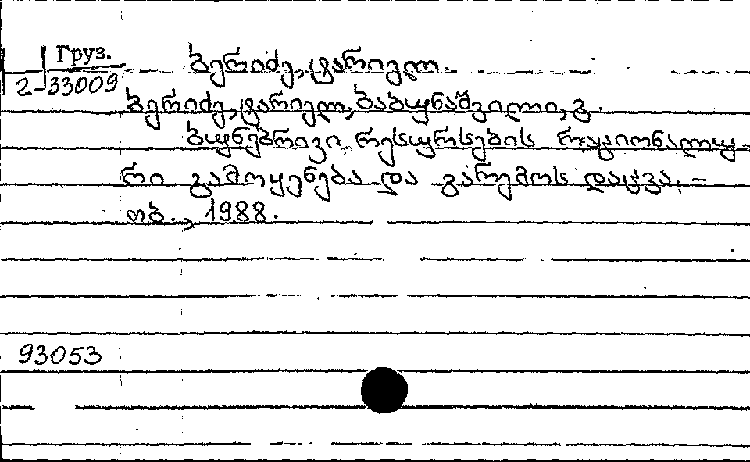 Груз.
2-33009
ბერიძე, ტარიელ.
ბერიძე, ტარიელ, ბაბუნაშვილი, გ.
ბუნებრივი რესურსების რაციონალუ-
რი გამოყენება და გარემოს დაცვა. –
თბ., 1988.
93053